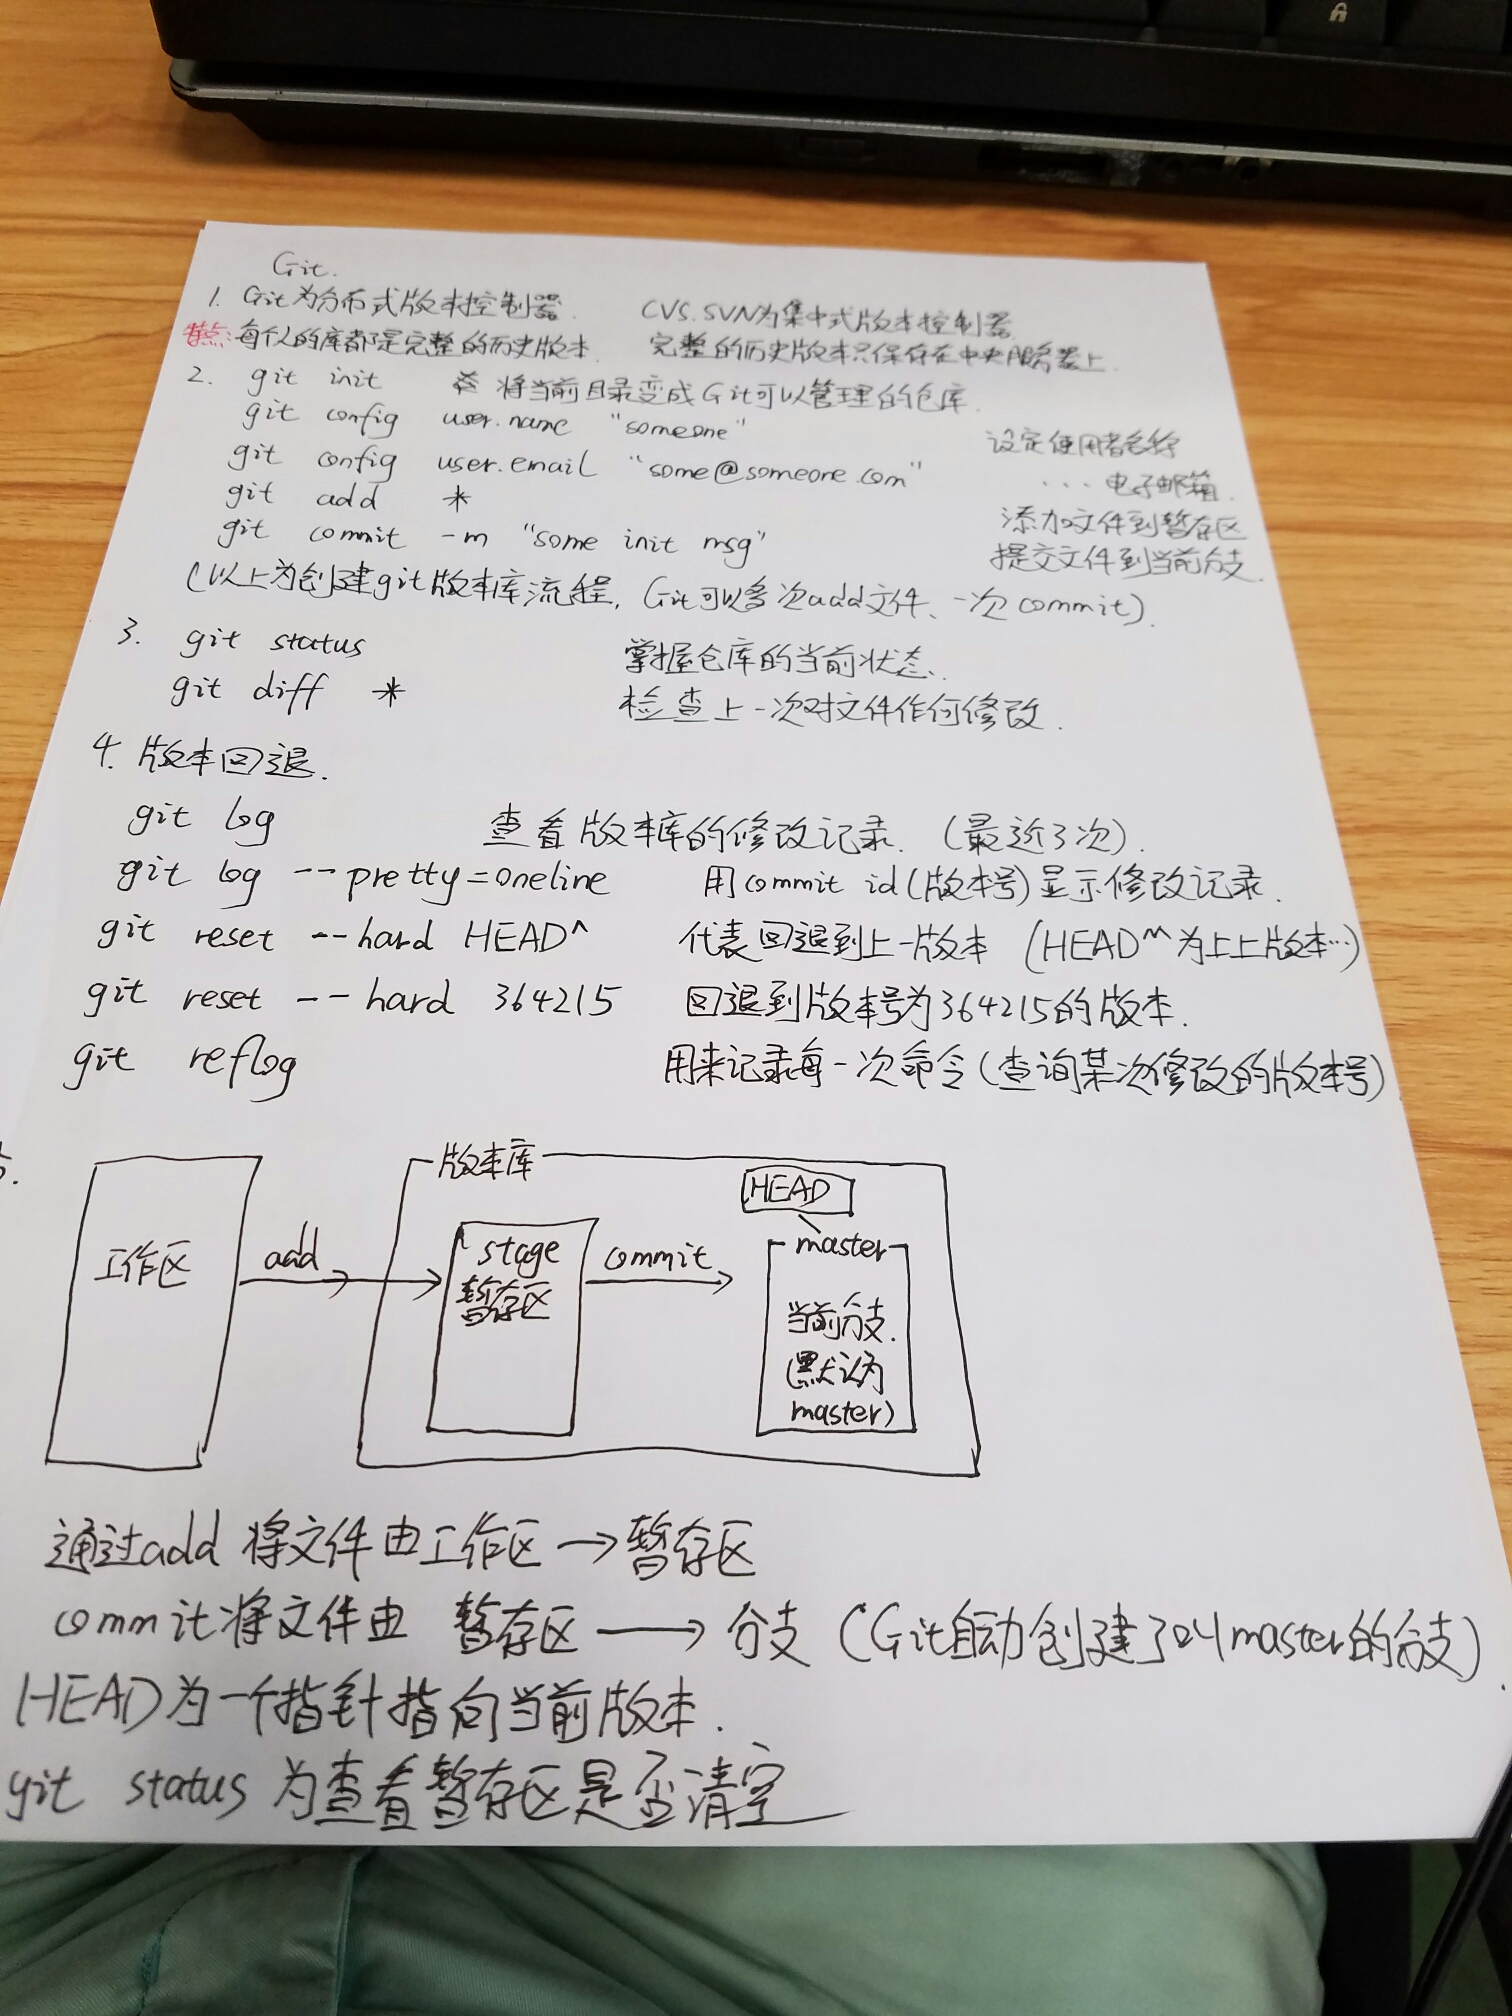 Git.
1. Git为分布式版本控制器. CVS.SVN为集中式版本控制器
特点:每个人的库都是完整的历史版本. 完整的历史版本只保存在中央服务器上.
2. git init 将当前目录变成Git可以管理的仓库.
git config user.name "someone" 设定使用者名称
git config user.email "some@someone.com" ...电子邮箱.
git add * 添加文件到暂存区
git commit -m "some init msg" 提交文件到当前分支.
(以上为创建git版本库流程, Git可以多次add文件、一次commit).
3. git status 掌握仓库的当前状态.
git diff * 检查上一次对文件作何修改.
4. 版本回退.
git log 查看版本库的修改记录. (最近3次).
git log --pretty=oneline 用commit id(版本号)显示修改记录.
git reset --hard HEAD^ 代表回退到上一版本 (HEAD^^为上上版本...)
git reset --hard 364215 回退到版本号为364215的版本.
git reflog 用来记录每一次命令(查询某次修改的版本号)
5.
版本库
HEAD
工作区 add stage commit master
暂存区
当前分支.
(默认为
master)
通过add 将文件由工作区→暂存区
commit将文件由 暂存区→分支 (Git自动创建了master的分支).
HEAD为一个指针指向当前版本.
git status 为查看暂存区是否清空